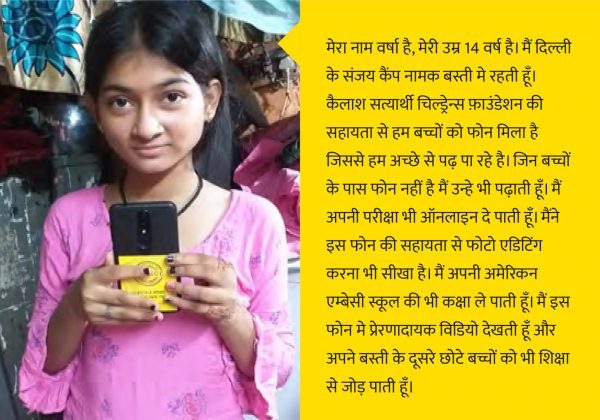 मेरा नाम वर्षा है, मेरी उम्र 14 वर्ष है। मैं दिल्ली
के संजय कैंप नामक बस्ती मे रहती हूँ।
कैलाश सत्यार्थी चिल्ड्रेन्स फ़ाउंडेशन की
सहायता से हम बच्चों को फोन मिला है
जिससे हम अच्छे से पढ़ पा रहे है। जिन बच्चों
के पास फोन नहीं है मैं उन्हे भी पढ़ाती हूँ। मैं
अपनी परीक्षा भी ऑनलाइन दे पाती हूँ। मैंने
इस फोन की सहायता से फोटो एडिटिंग
करना भी सीखा है। मैं अपनी अमेरिकन
एम्बेसी स्कूल की भी कक्षा ले पाती हूँ। मैं इस
फोन मे प्रेरणादायक विडियो देखती हूँ और
अपने बस्ती के दूसरे छोटे बच्चों को भी शिक्षा
से जोड़ पाती हूँ।